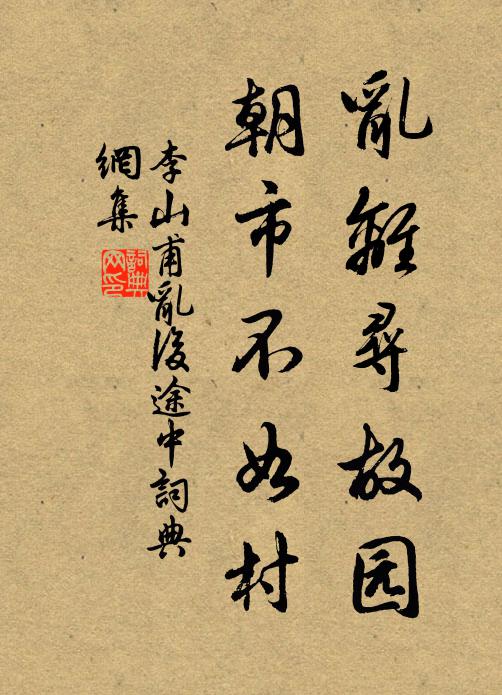 亂離尋故园
朝市不如村
李山甫亂後途中詞典
網集
詞典
网印